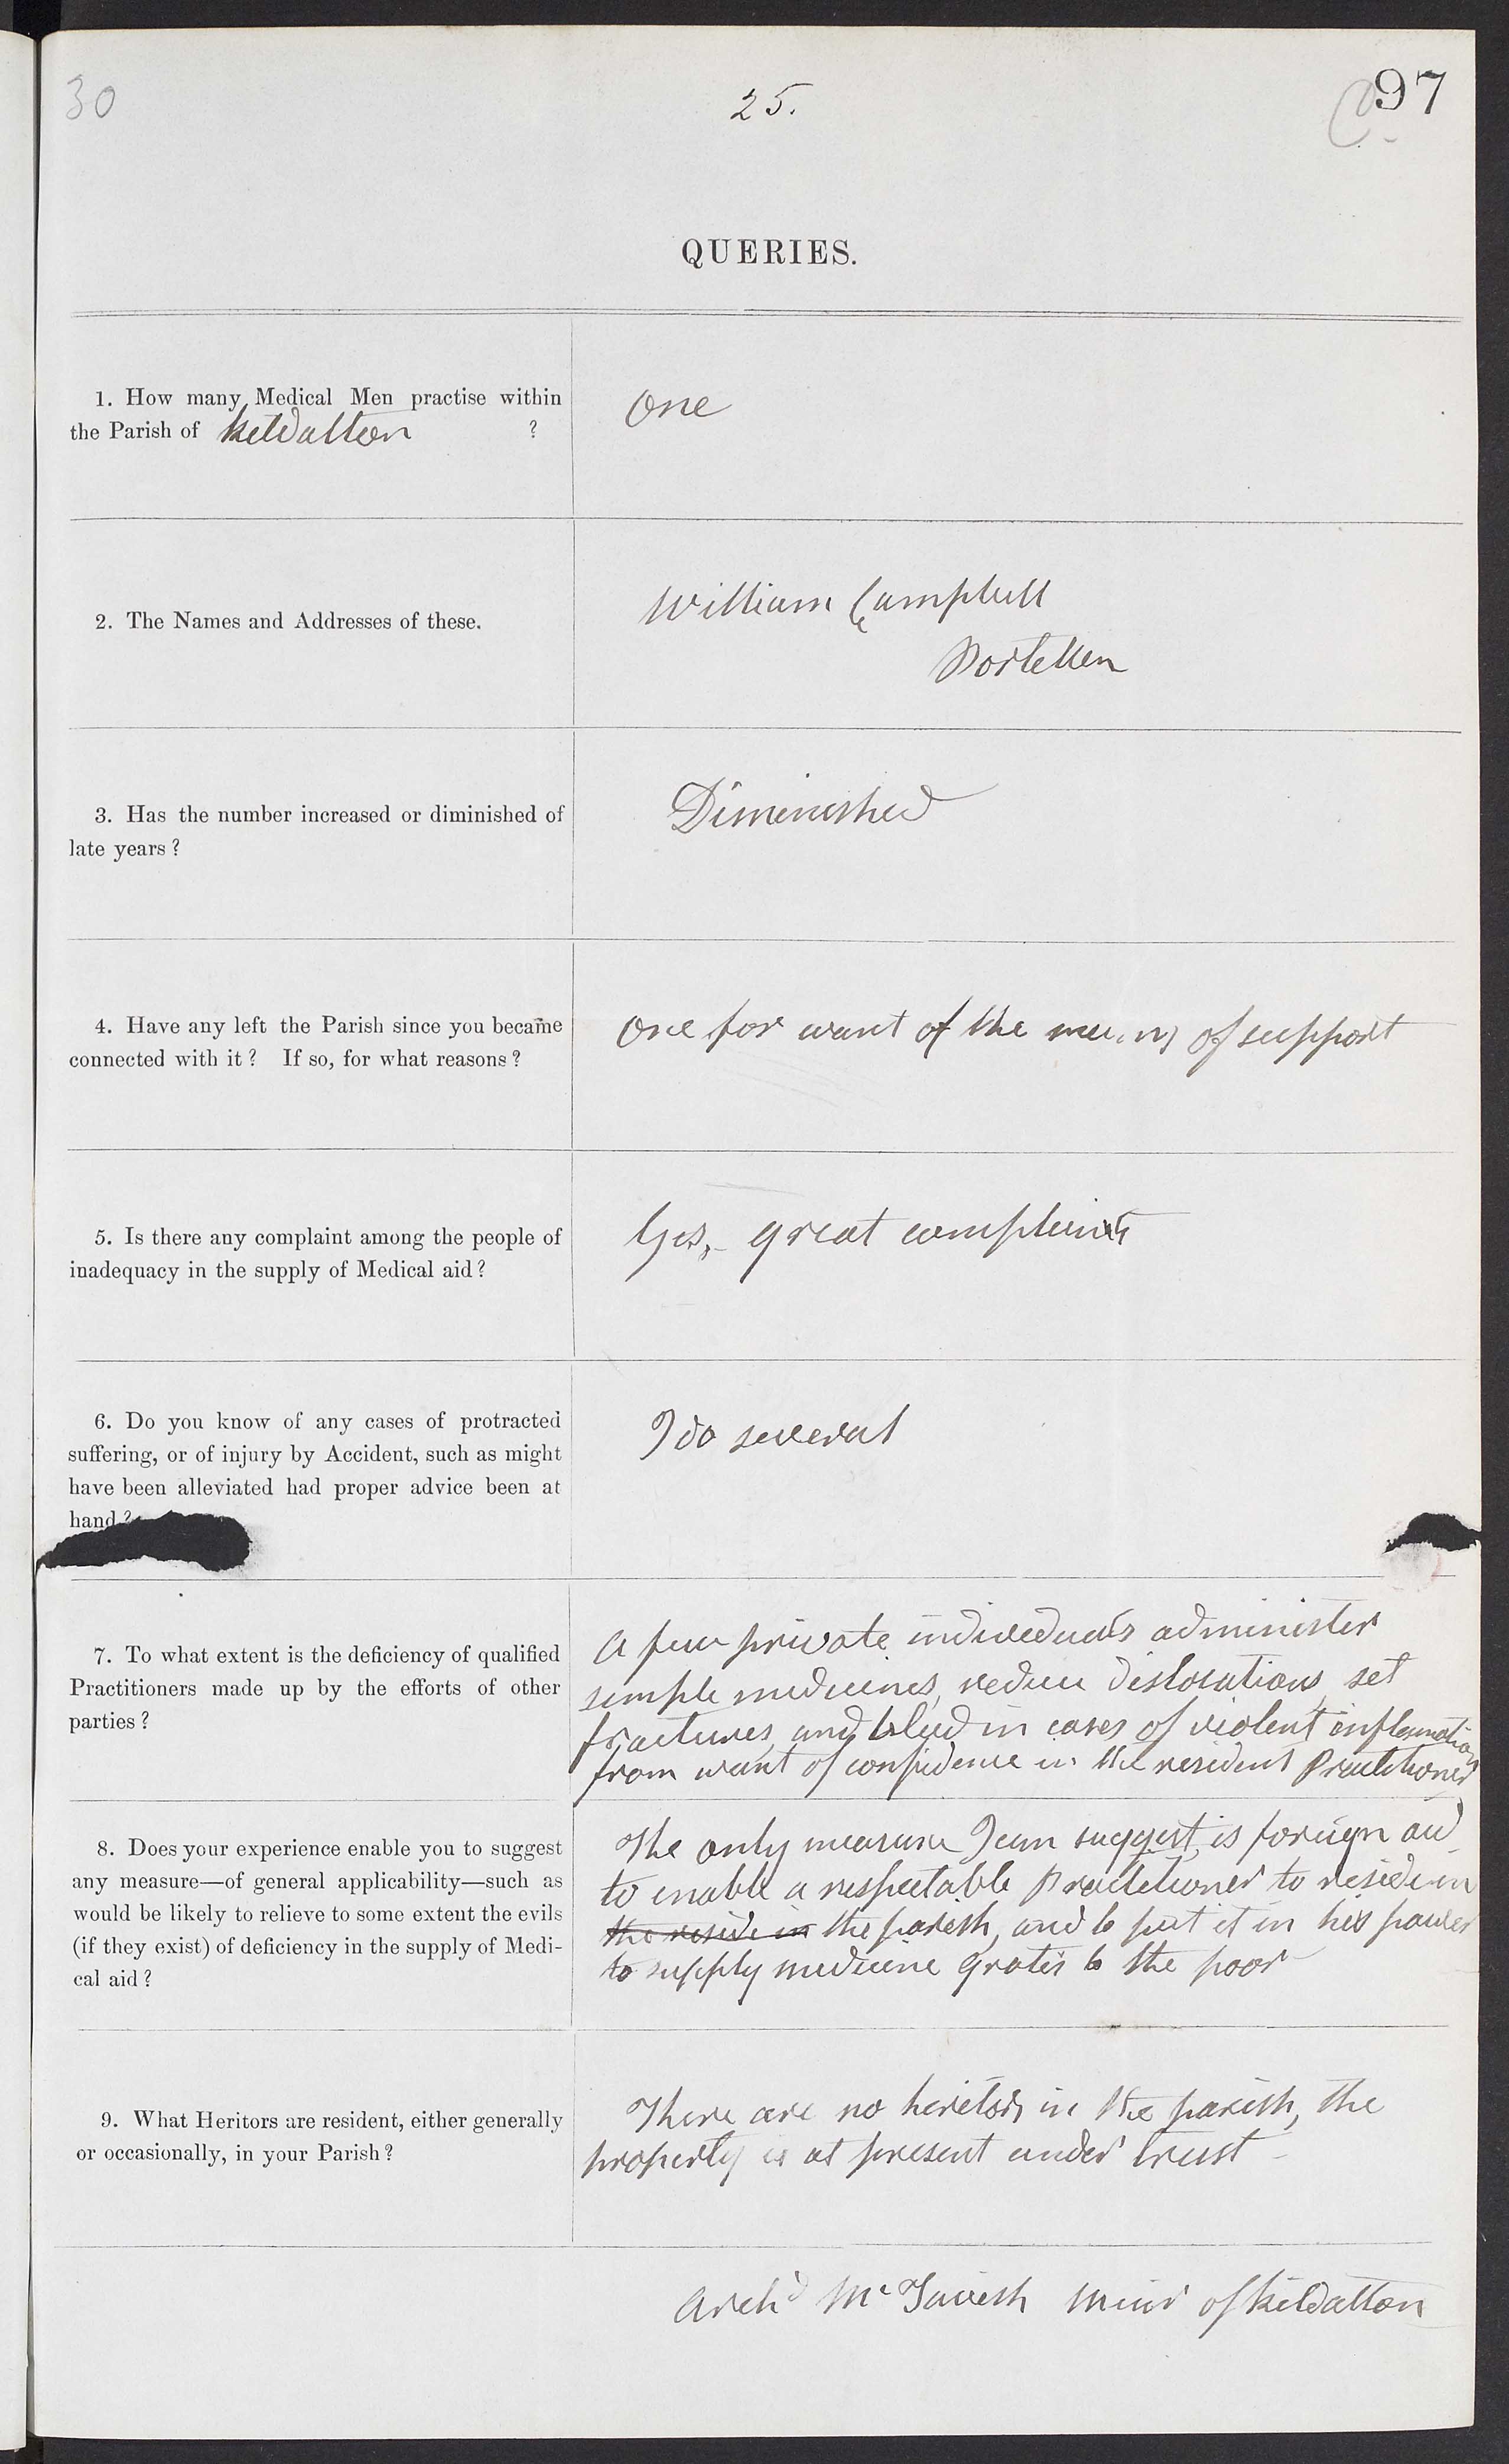 30
25.
97
QUERIES.
1. How many Medical Men practise within
the Parish of Kildalton ?
One
2. The Names and Addresses of these.
William Campbell
Portellen
3. Has the number increased or diminished of
late years ?
Diminished
4. Have any left the Parish since you became
connected with it ? If so, for what reasons ?
One for want of the means of support
5. Is there any complaint among the people of
inadequacy in the supply of Medical aid ?
Yes, - great complaints
6. Do you know of any cases of protracted
suffering, or of injury by Accident, such as might
have been alleviated had proper advice been at
hand ?
I do several
7. To what extent is the deficiency of qualified
Practitioners made up by the efforts of other
parties ?
A few private individuals administer
simple medicines, reduce dislocations, set
fractures, and bleed in cases of violent inflamation
from want of confidence in the resident Practitioner
8. Does your experience enable you to suggest
any measure—of general applicability—such as
would be likely to relieve to some extent the evils
(if they exist) of deficiency in the supply of Medi-
cal aid ?
The only measure I can suggest, is foreign aid
to enable a respectable Practitioner to reside in
the reside in the parish, and to put it in his power
to supply medicine gratis to the poor
9. What Heritors are resident, either generally
or occasionally, in your Parish ?
There are no heritors in the parish, the
property is at present under trust -
Archd McTavish Minr of Kildalton